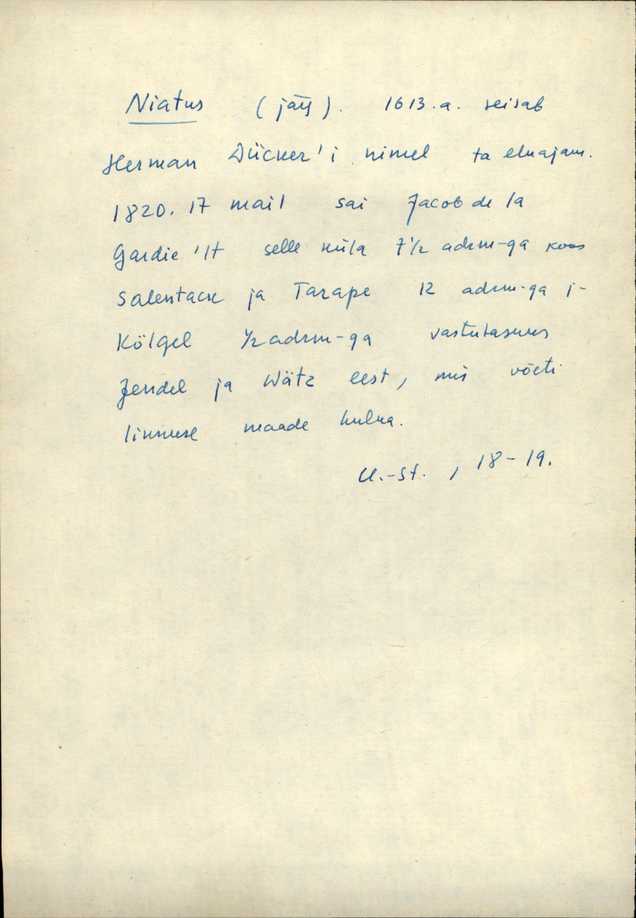 Niatus (järg). 1613.a. seisab
Herman Dücker'i nimel ta eluajam.
1820. 17 mail sai Jacob de la
Gardie'lt selle küla 7½ adrm-ga koos
Salentack ja Tarape 12 adrm-ga j-
Kölgel ½ adrm-ga vastutasuks
Jendel ja Wätz eest, mis võeti
linnuse maade hulka.
U.-St., 18-19.